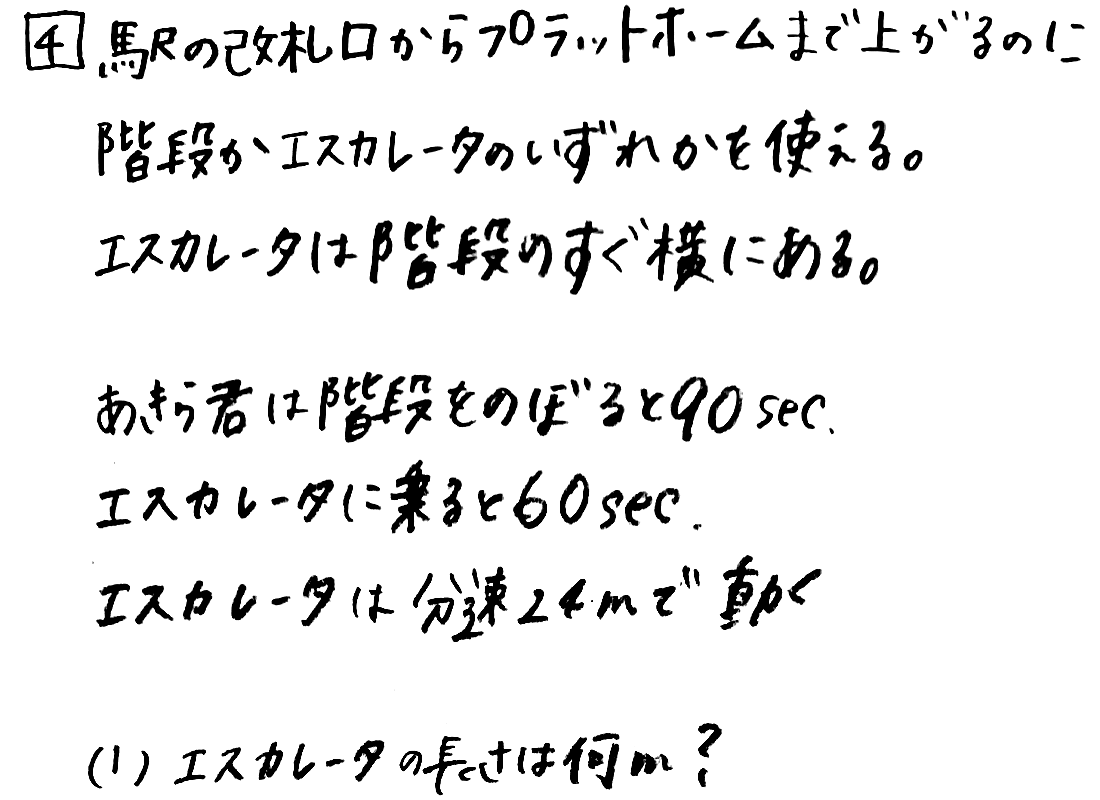 4 駅の改札口からプラットホームまで上がるのに
階段かエスカレータのいずれかを使える。
エスカレータは階段のすぐ横にある。
あきら君は階段をのぼると90sec.
エスカレータに乗ると60sec.
エスカレータは分速24mで動く
(1) エスカレータの長さは何m?